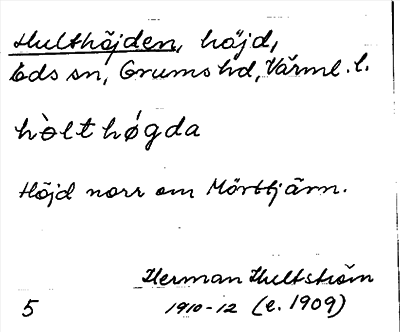 Hulthöjden, höjd,
Eds sn, Grums hd, Värml. l.
hòlt hǿgda
Höjd norr om Mörttjärn.
Herman Hultström
5 1910-12 (e. 1909)